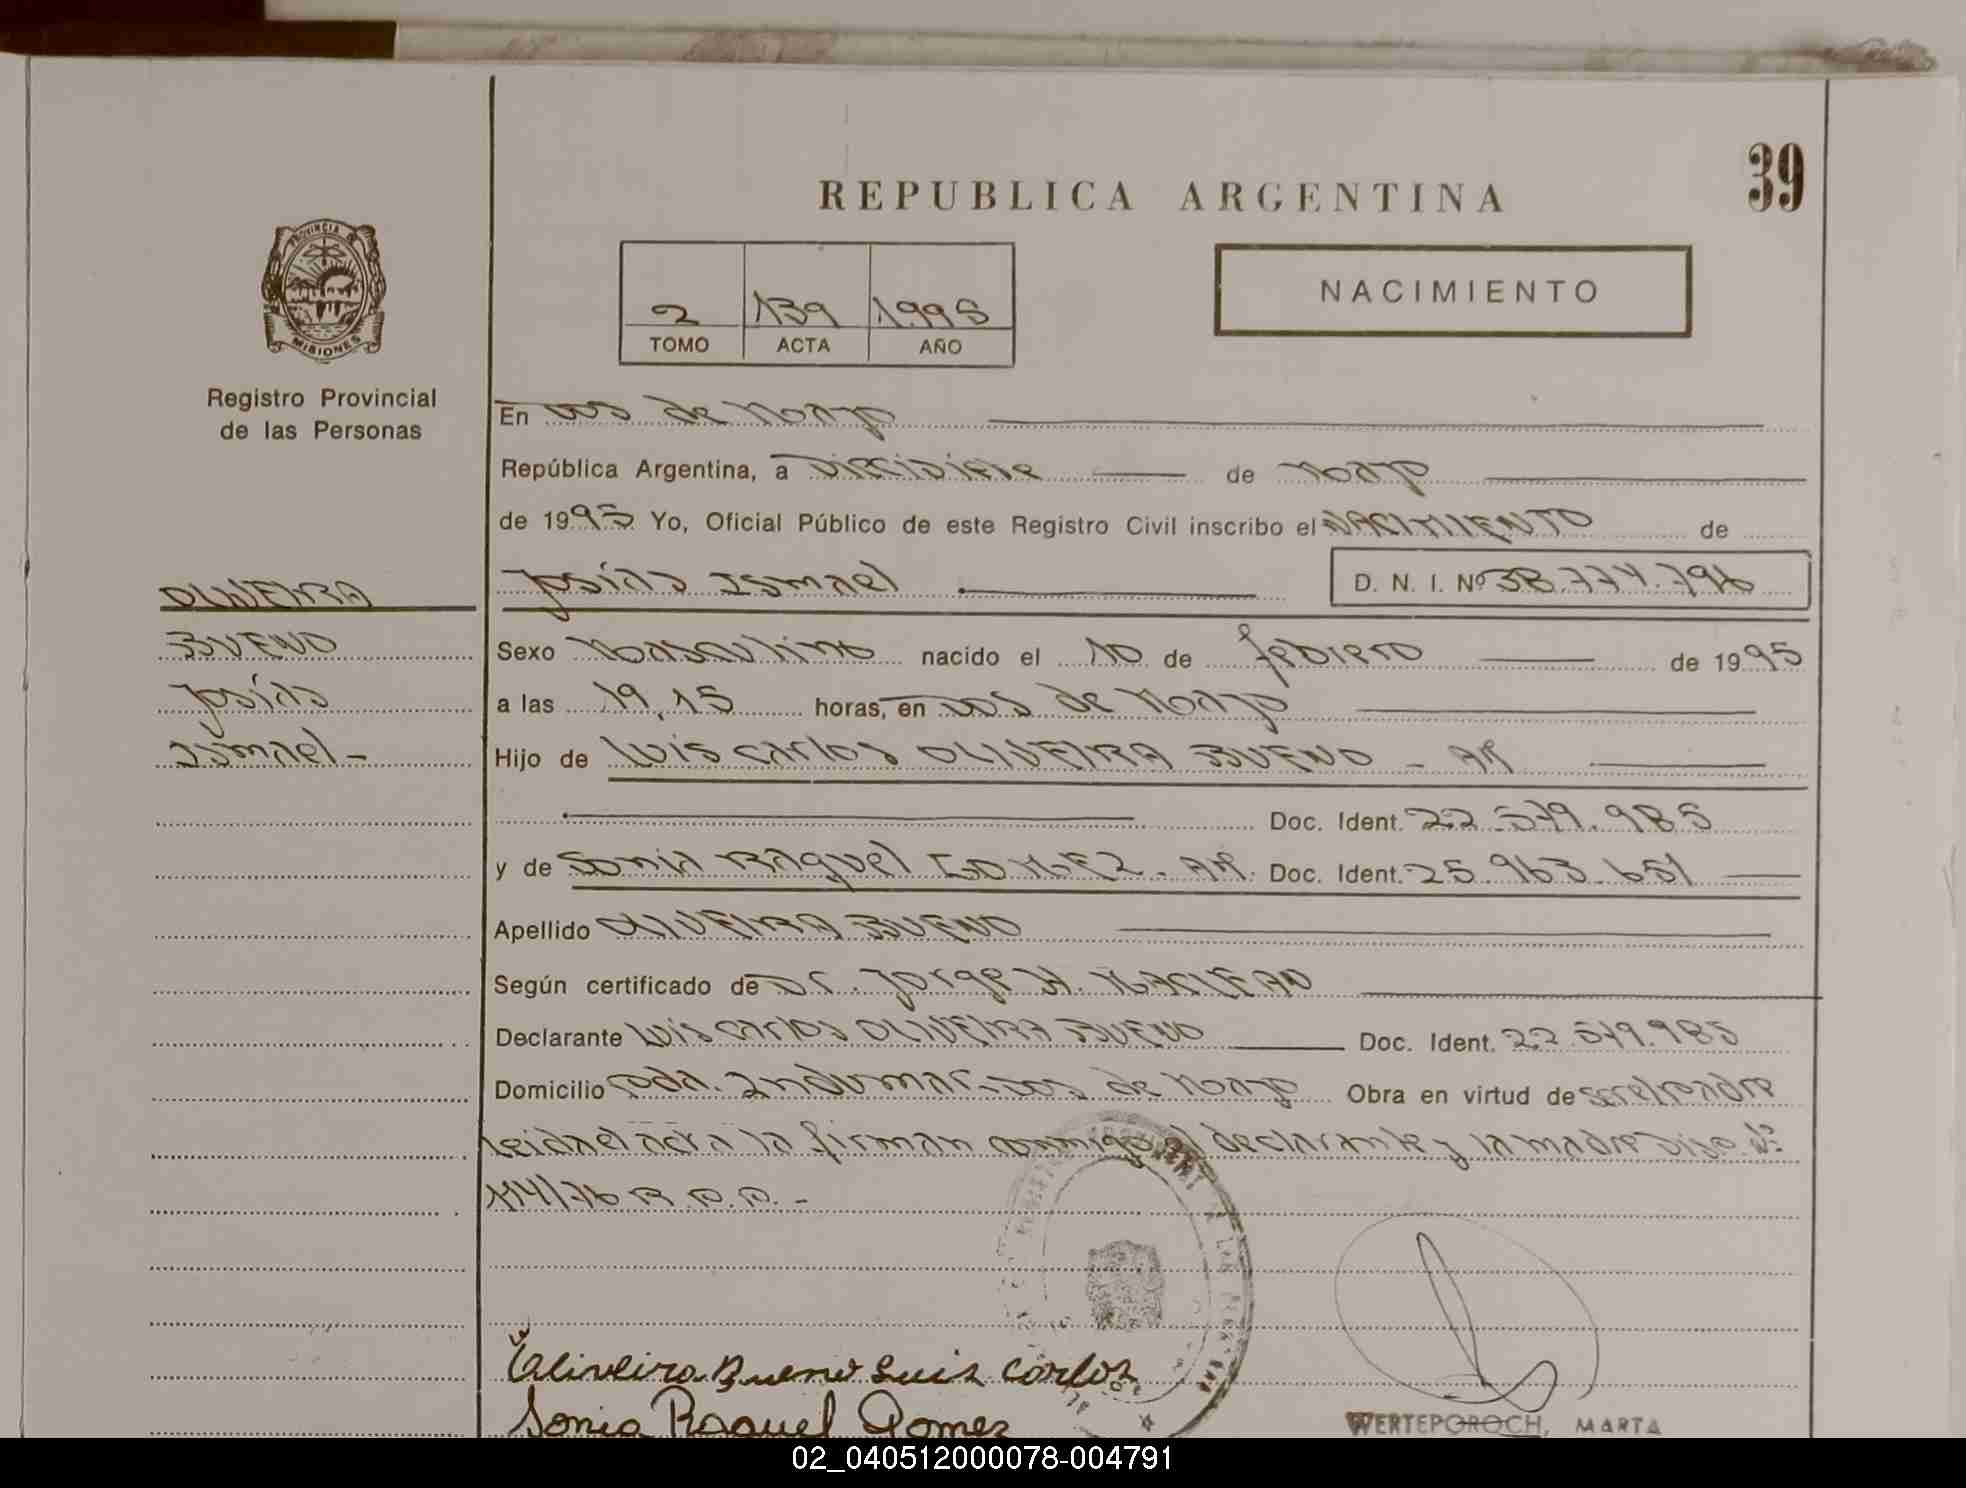 39
REPUBLICA ARGENTINA
PROVINCIA DE
MISIONES
Registro Provincial
de las Personas
2 139 1995
TOMO ACTA AÑO
NACIMIENTO
En Dos de Mayo
República Argentina, a Diecisiete de Mayo
de 1995 Yo, Oficial Público de este Registro Civil inscribo el NACIMIENTO de
Josías Ismael D. N. I. Nº 38.774.796
OLIVEIRA
BUENO
Josías
Ismael -
Sexo Masculino nacido el 10 de febrero de 1995
a las 19,15 horas, en Dos de Mayo
Hijo de Luis Carlos OLIVEIRA BUENO - AR
Doc. Ident. 22.579.985
y de Sonia Raquel GOMEZ - AR. Doc. Ident. 25.963.651
Apellido OLIVEIRA BUENO
Según certificado de Dr. Jorge H. MACLEAN
Declarante Luis Carlos OLIVEIRA BUENO Doc. Ident. 22.579.985
Domicilio Pda. Indumar-Dos de Mayo Obra en virtud de ser el padre
Leida el acta la firman conmigo el declarante y la madre Disp. Nº
114/76 R.P.P. -
Oliveira Bueno Luis Carlos
Sonia Raquel Gomez
WERTEPOROCH, MARTA
02_040512000078-004791